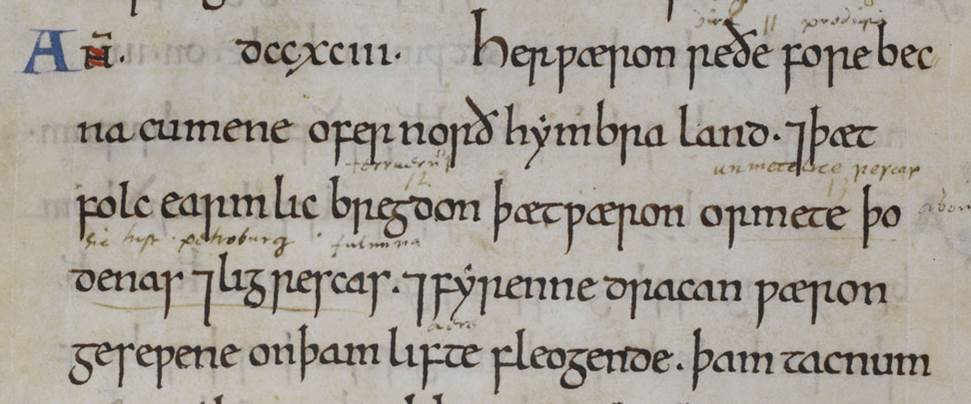 prodigia
Añ. dccxciii. Her ƿæron reðe forebec
na cumene ofer norðhẏmbra land. ⁊ þæt
folc earmlic bregdon þæt ƿæron ormete þo
petroburg fulmina
denas ⁊ ligrescas. ⁊ fẏrenne dracan ƿæron
geseƿene on þam lifte fleogende. þam tacnum